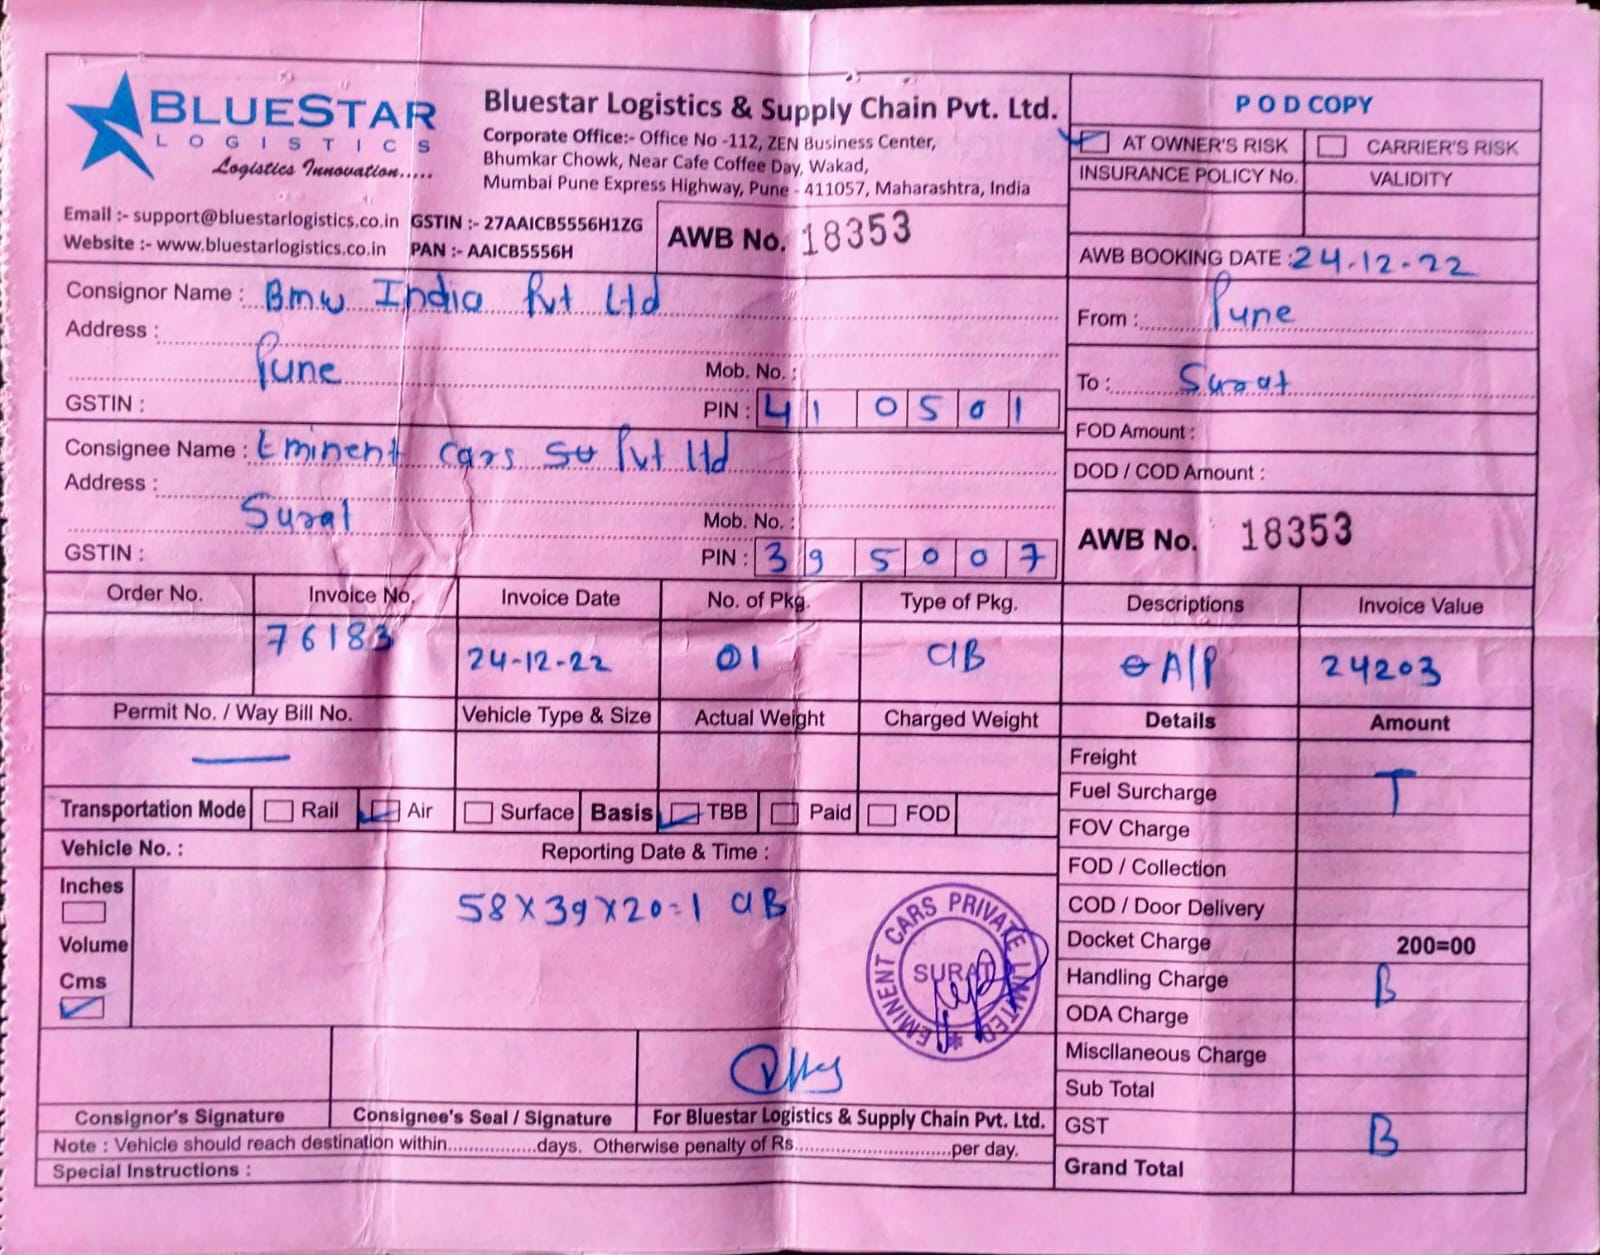 BLUESTAR
LOGISTICS
Logistics Innovation.....
Bluestar Logistics & Supply Chain Pvt. Ltd.
Corporate Office:- Office No -112, ZEN Business Center,
Bhumkar Chowk, Near Cafe Coffee Day, Wakad,
Mumbai Pune Express Highway, Pune - 411057, Maharashtra, India
Email :- support@bluestarlogistics.co.in GSTIN :- 27AAICB5556H1ZG
Website :- www.bluestarlogistics.co.in PAN :- AAICB5556H
AWB No. 18353
POD COPY
AT OWNER'S RISK CARRIER'S RISK
INSURANCE POLICY No. VALIDITY
AWB BOOKING DATE : 24-12-22
Consignor Name : Bmw India Pvt Ltd
Address :
Pune
Mob. No. :
GSTIN :
PIN : 410501
From : Pune
To : Surat
Consignee Name : Eminent cars Su Pvt Ltd
Address :
Surat
Mob. No. :
GSTIN :
PIN : 395007
FOD Amount :
DOD / COD Amount :
AWB No. 18353
Order No. Invoice No. Invoice Date No. of Pkg. Type of Pkg. Descriptions Invoice Value
76183 24-12-22 01 CIB A/P 24203
Permit No. / Way Bill No. Vehicle Type & Size Actual Weight Charged Weight Details Amount
Transportation Mode Rail Air Surface Basis TBB Paid FOD
Vehicle No. : Reporting Date & Time :
Inches
Volume
Cms
58X39X20=1 CIB
EMINENT CARS PRIVATE LIMITED
SURAT
Freight
Fuel Surcharge T
FOV Charge
FOD / Collection
COD / Door Delivery
Docket Charge 200=00
Handling Charge B
ODA Charge
Miscllaneous Charge
Sub Total
GST B
Grand Total
Consignor's Signature Consignee's Seal / Signature For Bluestar Logistics & Supply Chain Pvt. Ltd.
Note : Vehicle should reach destination within.................days. Otherwise penalty of Rs.............................per day.
Special Instructions :